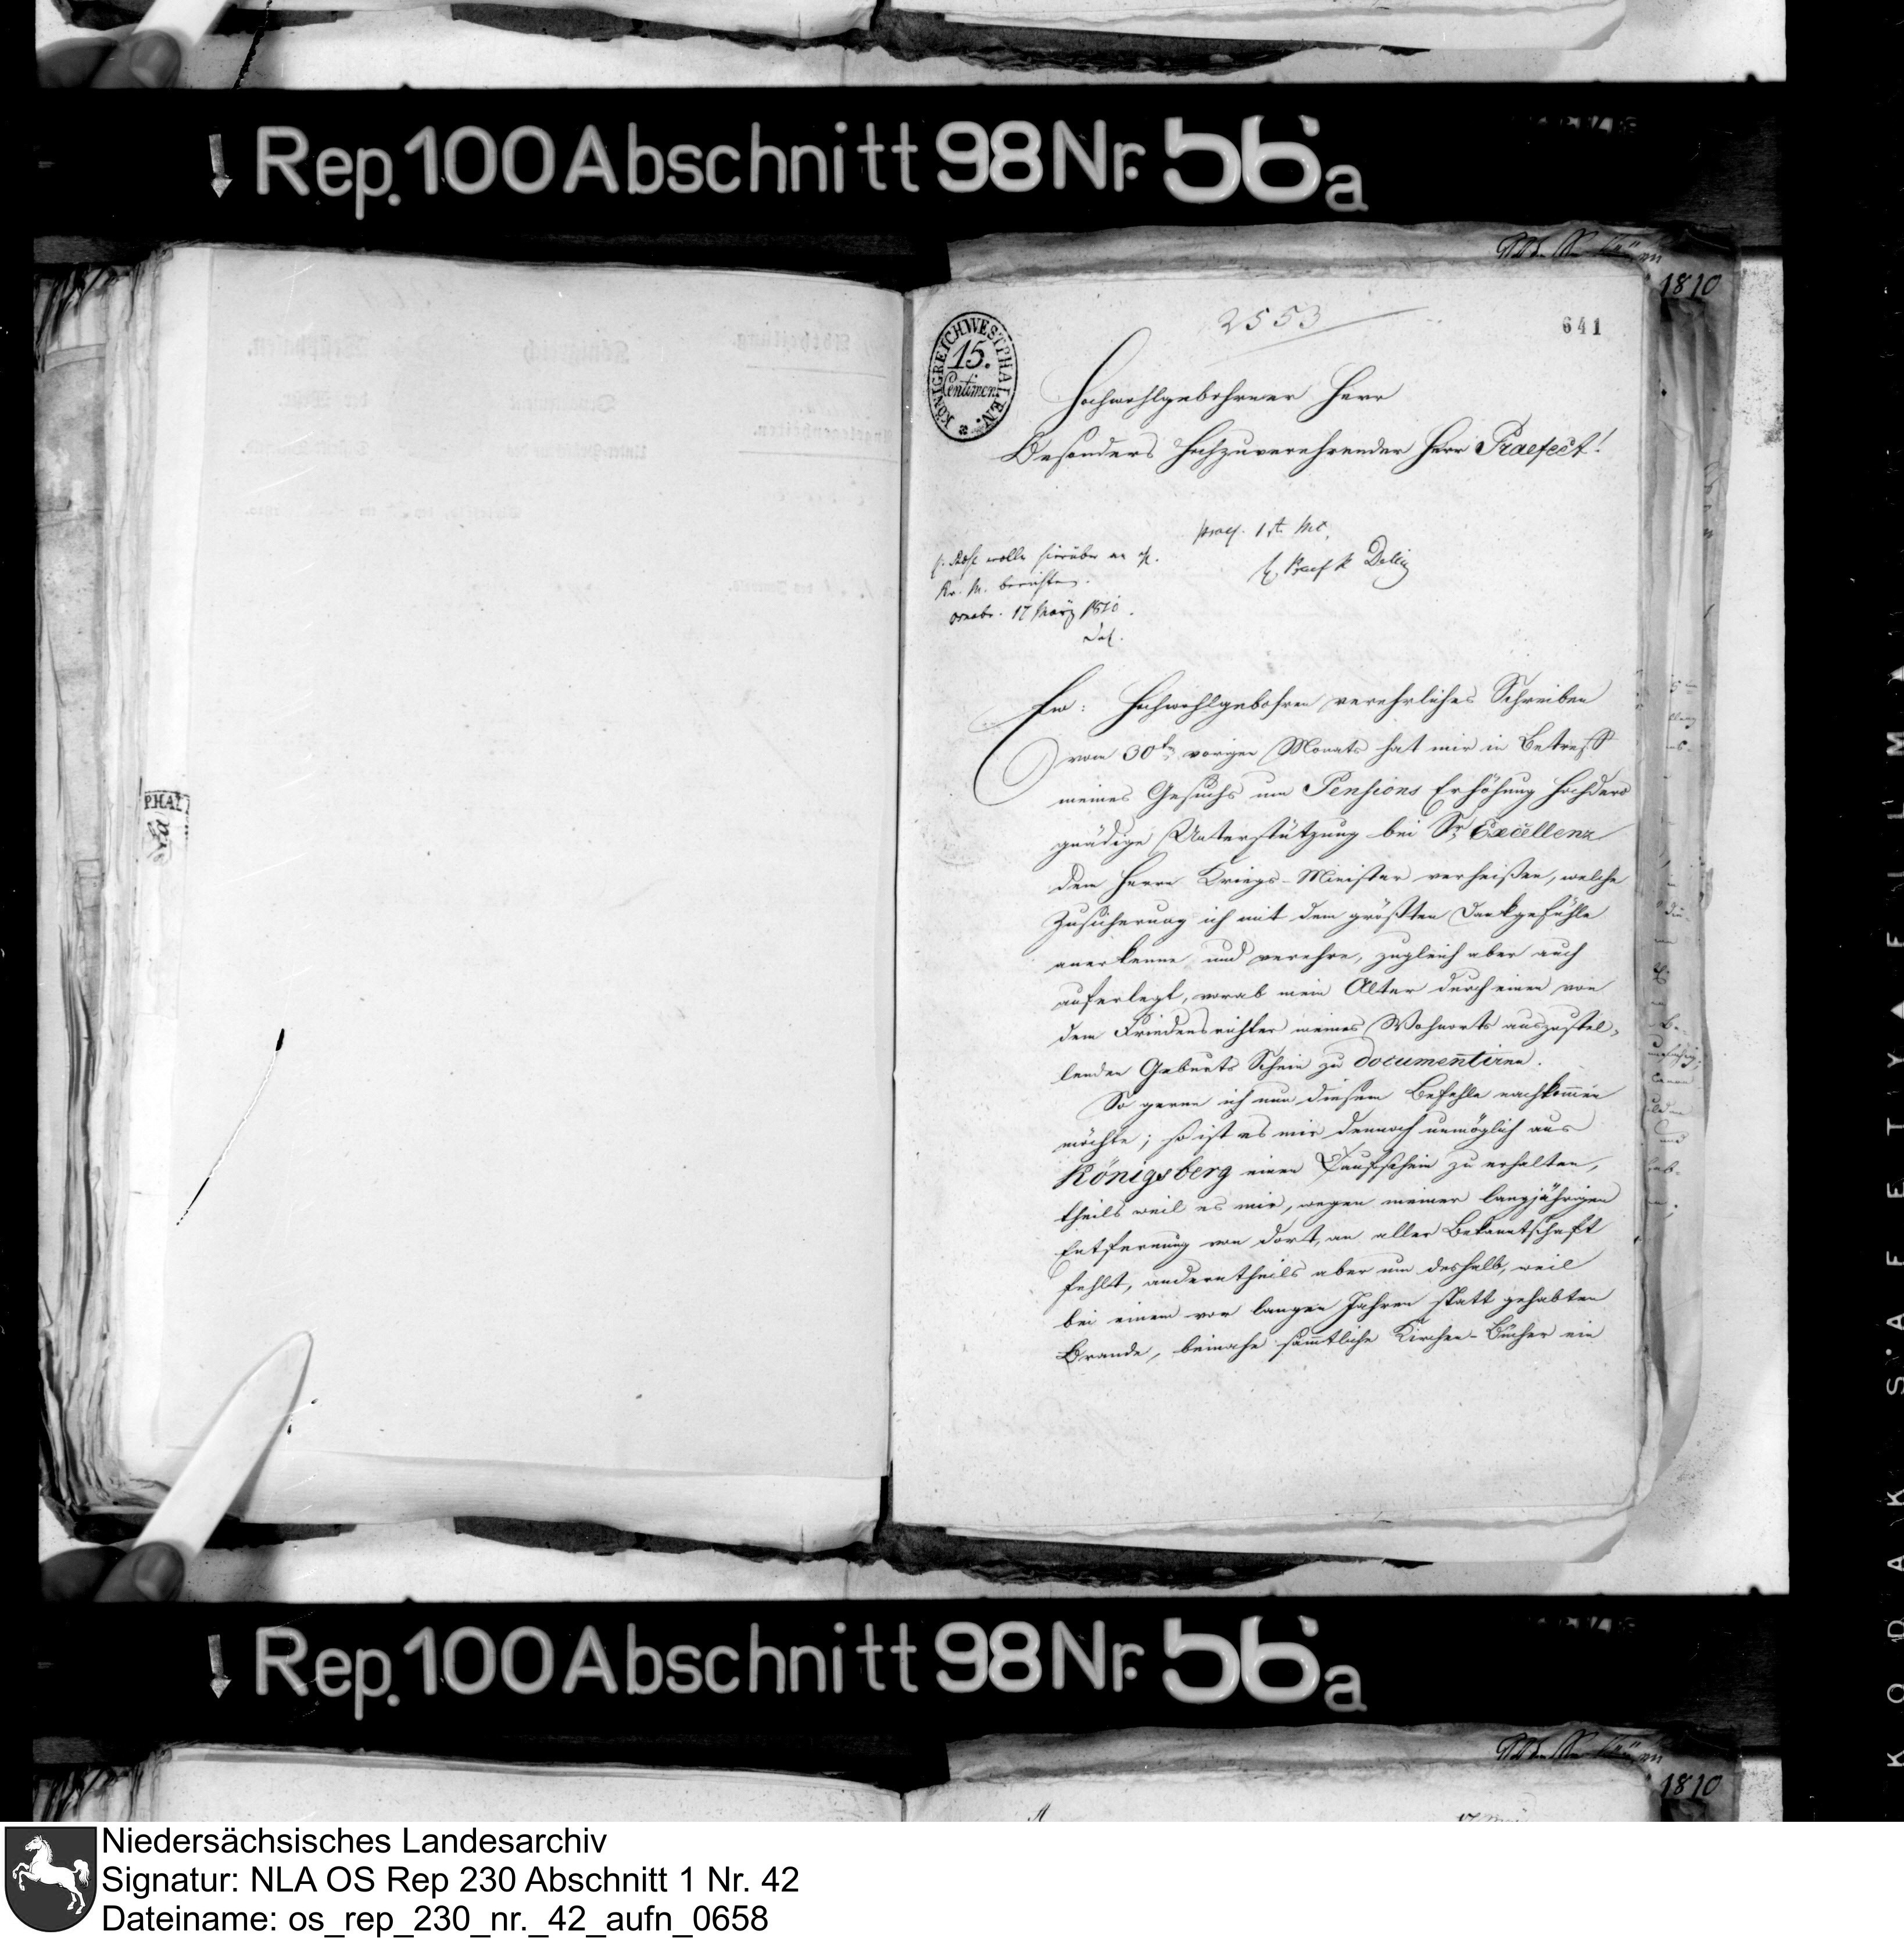 Rep. 100 Abschnitt 98 Nr. 56a
1810
2553
641
KÖNIGREICH WESTPHALEN.
15.
Centimen
Hochwohlgebohrner Herr
Besonders Hochzuverehrender Herr Praefect!
praes. 1 st. Mt.
wolle hierüber an
Kr. M. berichten.
Osnabr. 17 März 1810.
Ew: Hochwohlgebohren verehrliches Schreiben
vom 30ten vorigen Monats hat mir in Betreff
meines Gesuchs um Pensions Erhöhung Hochdero
gnädige Unterstützung bei Sr. Excellenz
dem Herrn Kriegs-Minister verheißen, welche
Zusicherung ich mit dem größten Dankgefühle
anerkenne und verehre, zugleich aber auch
auferlegt, vorab mein Alter durch einen von
dem Friedensrichter meines Wohnorts auszustel-
lenden Geburts Schein zu documentiren.
So gerne ich nun diesem Befehle nachkommen
möchte; so ist es mir dennoch unmöglich aus
Königsberg einen Taufschein zu erhalten,
theils weil es mir, wegen meiner langjährigen
Entfernung von dort, an aller Bekanntschaft
fehlt, anderntheils aber um deshalb, weil
bei einem vor langen Jahren statt gehabten
Brande, beinahe sämmtliche Kirchen-Bücher ein
PHAL
Rep. 100 Abschnitt 98 Nr. 56a
1810
KODAK SAFETY FILM
Niedersächsisches Landesarchiv
Signatur: NLA OS Rep 230 Abschnitt 1 Nr. 42
Dateiname: os_rep_230_nr._42_aufn_0658